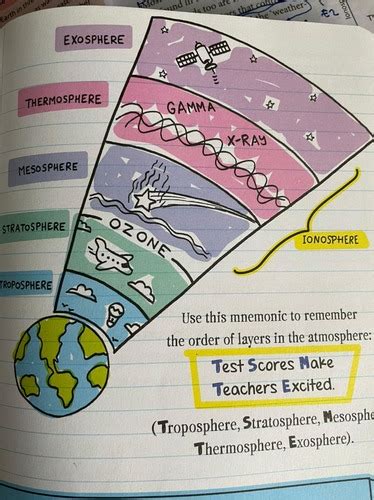 EXOSPHERE
THERMOSPHERE
GAMMA
X-RAY
MESOSPHERE
STRATOSPHERE
OZONE
IONOSPHERE
TROPOSPHERE
Use this mnemonic to remember
the order of layers in the atmosphere:
Test Scores Make
Teachers Excited.
(Troposphere, Stratosphere, Mesosphe
Thermosphere, Exosphere).